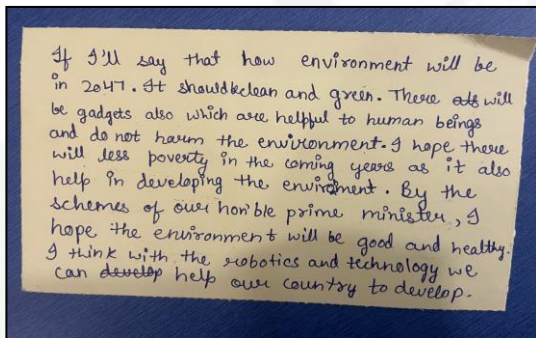 If I'll say that how environment will be
in 2047. It should be clean and green. There will
be gadgets also which are helpful to human beings
and do not harm the environment. I hope there
will less poverty in the coming years as it also
help in developing the environment. By the
schemes of our hon'ble prime minister, I
hope the environment will be good and healthy.
I think with the robotics and technology we
can develop help our country to develop.